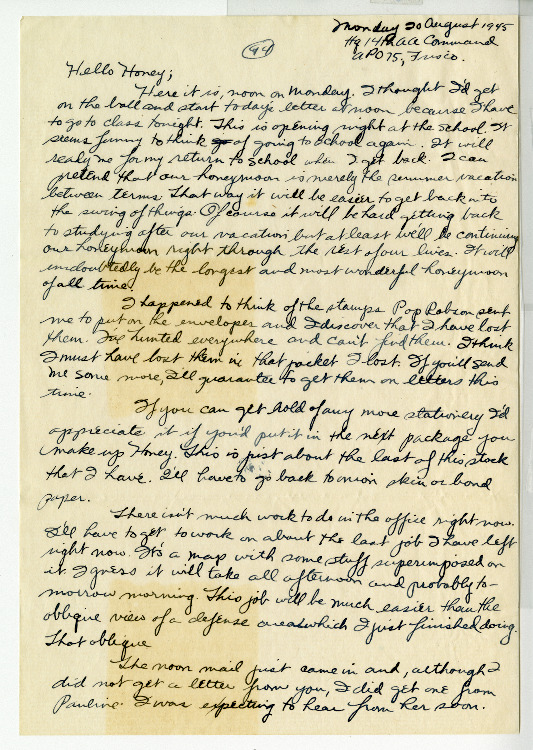 Monday 20 August 1945
Hq 14th AA Command
APO 75, Frisco.
94
Hello Honey;
Here it is, noon on Monday. I thought I'd get
on the ball and start today's letter at noon because I have
to go to class tonight. This is opening night at the school. It
seems funny to think of going to school again. It will
ready me for my return to school when I get back. I can
pretend that our honeymoon is merely the summer vacation
between terms. That way it will be easier to get back into
the swing of things. Of course it will be hard getting back
to studying after our vacation but at least we'll be continuing
our honeymoon right through the rest of our lives. It will
undoubtedly be the longest and most wonderful honeymoon
of all time.
I happened to think of the stamps Pop Robson sent
me to put on the envelopes and I discover that I have lost
them. I've hunted everywhere and can't find them. I think
I must have lost them in that packet I lost. If you'll send
me some more, I'll guarantee to get them on letters this
time.
If you can get hold of any more stationery I'd
appreciate it if you'd put it in the next package you
make up Honey. This is just about the last of this stock
that I have. I'll have to go back to onion skin or bond
paper.
There isn't much work to do in the office right now.
I'll have to get to work on about the last job I have left
right now. It's a map with some stuff superimposed on
it. I guess it will take all afternoon and probably to-
morrow morning. This job will be much easier than the
oblique view of a defense area which I just finished doing.
That oblique
The noon mail just came in and, although I
did not get a letter from you, I did get one from
Pauline. I was expecting to hear from her soon.